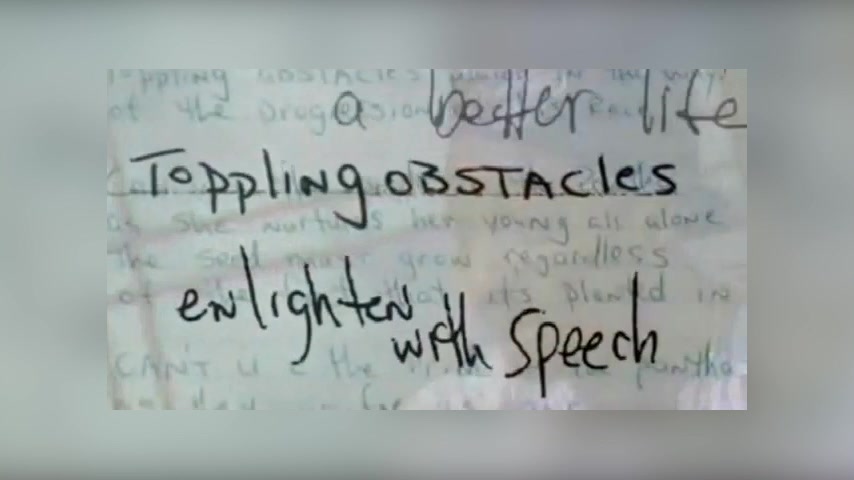 Toppling OBSTACLES placed in the way
of the progression
a better life
Toppling OBSTACLES
as she nurtures her young all alone
The seed must grow regardless
of the fact that its planted in
enlighten
with Speech
CAN'T U C the